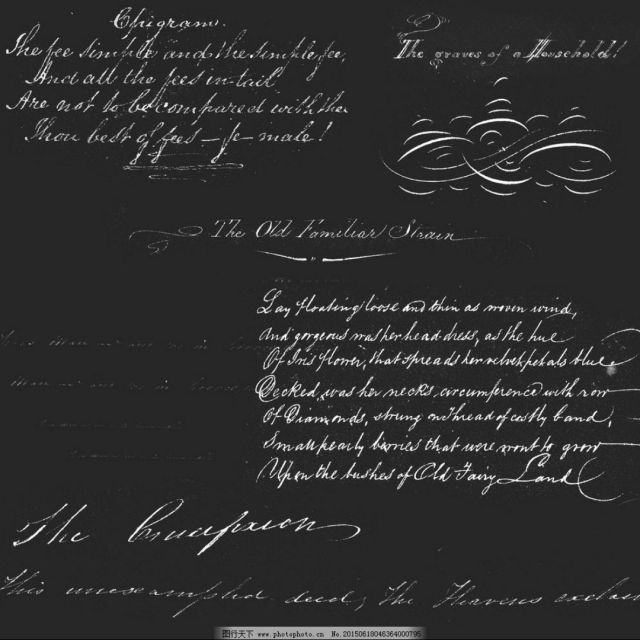 Epigram.
The fee simple and the simple fee,
And all the fees in tail
Are not to be compared with thee
Thou best of fees — fe-male!
The graves of a Household!
The Old Familiar Strain
Lay floating loose and thin as woven wind,
And gorgeous was her head-dress, as the hue
Of Iris flower, that spreads her velvet petals blue
Decked was her neck's circumference with row
Of Diamonds, strung on thread of costly band,
Small pearly berries that were wont to grow
Upon the bushes of Old Fairy Land
The Crucifixion
This unexampled deed, the Heavens exclaim
图行天下 www.photophoto.cn No.20150618046364000795